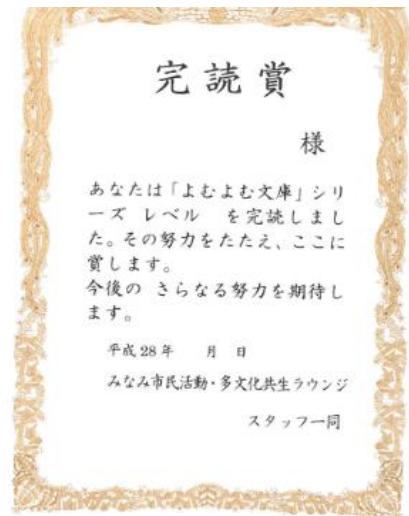 完読賞
様
あなたは「よむよむ文庫」シリ
ーズ レベル　を完読しまし
た。その努力をたたえ、ここに
賞します。
今後の さらなる努力を期待し
ます。
平成28年　月　日
みなみ市民活動・多文化共生ラウンジ
スタッフ一同